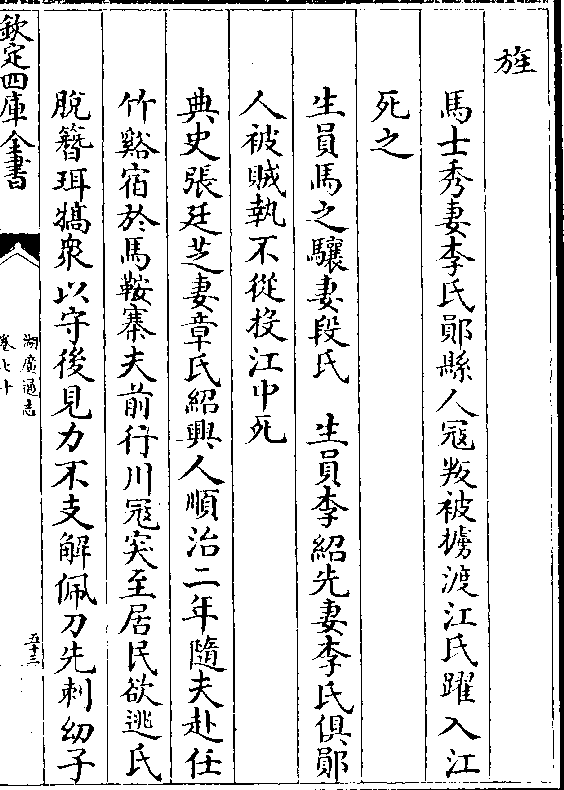 旌
馬士秀妻李氏鄖縣人冦叛被擄渡江氏躍入江
死之
生員馬之驤妻段氏　生員李紹先妻李氏俱鄖
人被賊執不從投江中死
典史張廷芝妻章氏紹興人順治二年隨夫赴任
竹谿宿於馬鞍寨夫前行川冦突至居民欲逃氏
脫簪珥犒衆以守後見力不支解佩刀先刺幼子
欽定四庫全書
湖廣通志
卷七十
五十三